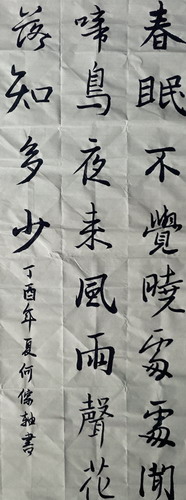 春眠不覺曉處處聞
啼鳥夜来風雨聲花
落知多少
丁酉年夏何儒軸書